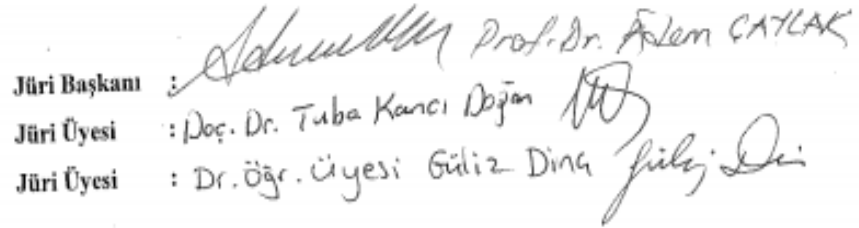 Jüri Başkanı : Prof. Dr. Adem ÇAYLAK
Jüri Üyesi : Doç. Dr. Tuba Kancı Doğan
Jüri Üyesi : Dr. Öğr. Üyesi Güliz Dinç